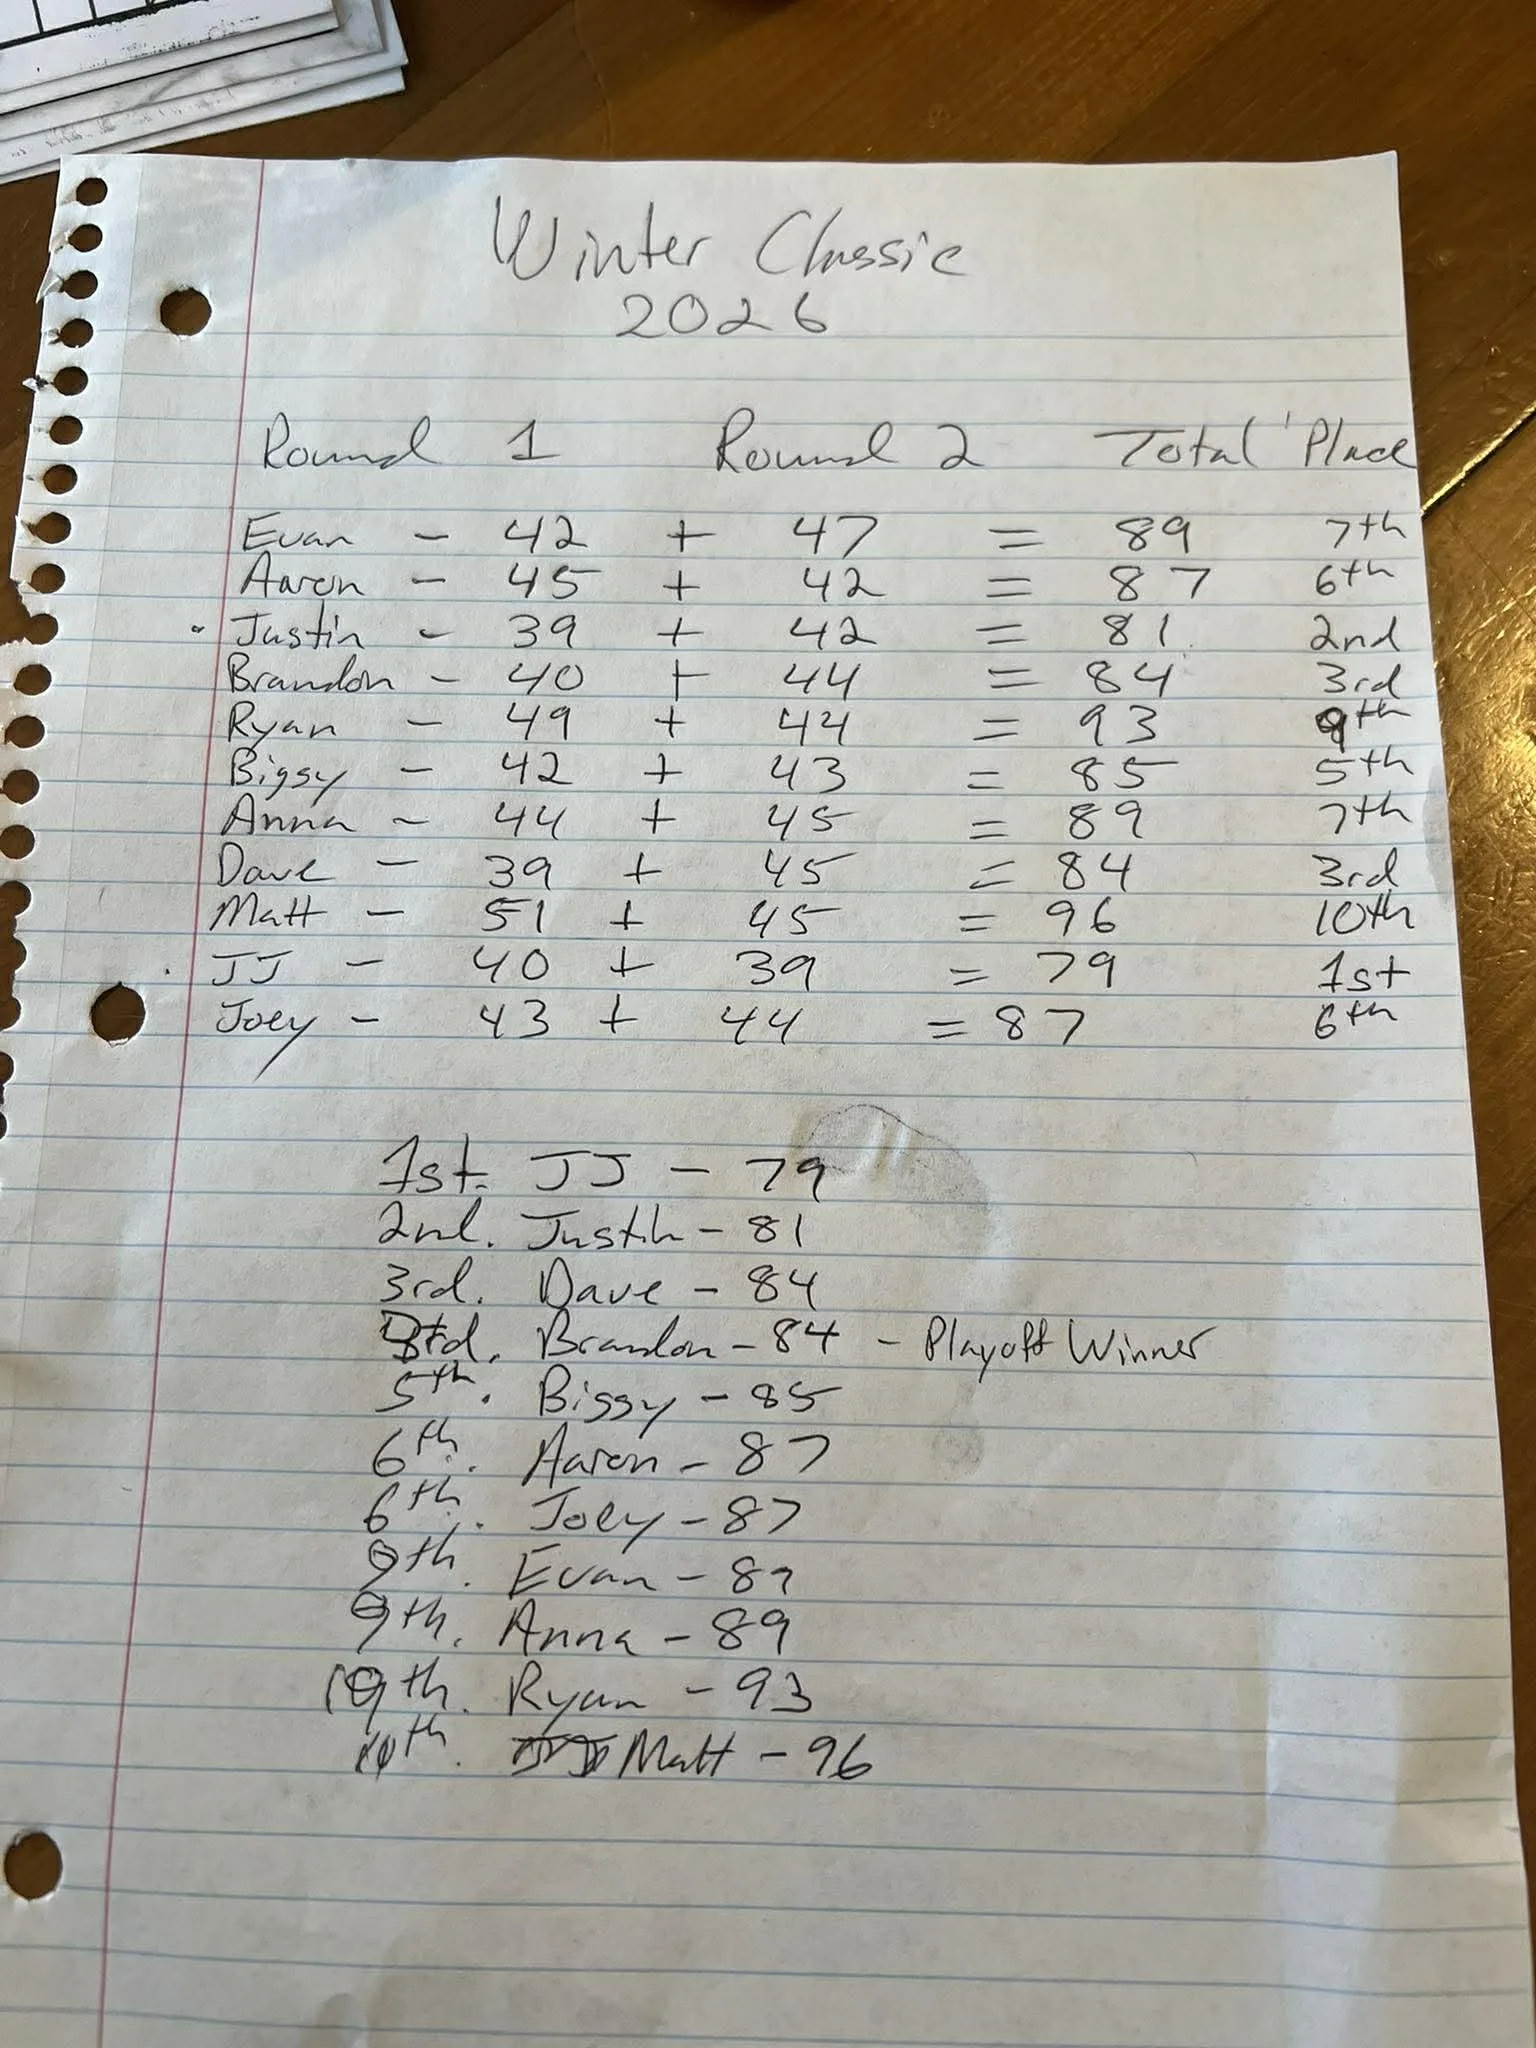 Winter Classic
2026
Round 1 Round 2 Total Place
Evan - 42 + 47 = 89 7th
Aaron - 45 + 42 = 87 6th
Justin - 39 + 42 = 81 2nd
Brandon - 40 + 44 = 84 3rd
Ryan - 49 + 44 = 93 9th
Bigsy - 42 + 43 = 85 5th
Anna - 44 + 45 = 89 7th
Dave - 39 + 45 = 84 3rd
Matt - 51 + 45 = 96 10th
JJ - 40 + 39 = 79 1st
Joey - 43 + 44 = 87 6th
1st. JJ - 79
2nd. Justin - 81
3rd. Dave - 84
3rd. Brandon - 84 - Playoff Winner
5th. Bigsy - 85
6th. Aaron - 87
6th. Joey - 87
9th. Evan - 89
9th. Anna - 89
10th. Ryan - 93
Matt - 96